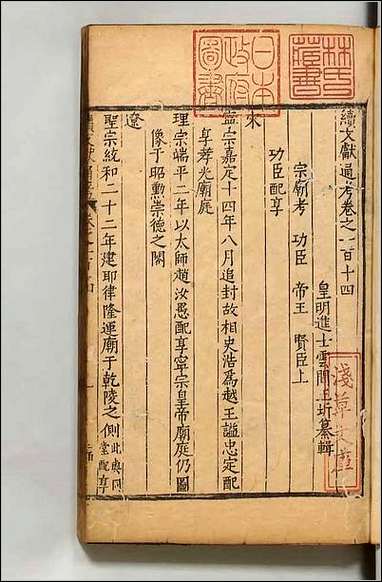 續文獻通考卷之一百十四
皇明進士雲間王圻纂輯
宗廟考 功臣 帝王 賢臣上
功臣配享
宋
寧宗嘉定十四年八月追封故相史浩爲越王謚忠定配
享孝宗廟庭
理宗端平二年以太師趙汝愚配享寧宗皇帝廟庭仍圖
像于昭勳崇德之閣
遼
聖宗統和二十二年建耶律隆運廟于乾陵之側此與同
堂配享
林氏藏書
日本政府圖書
淺草文庫